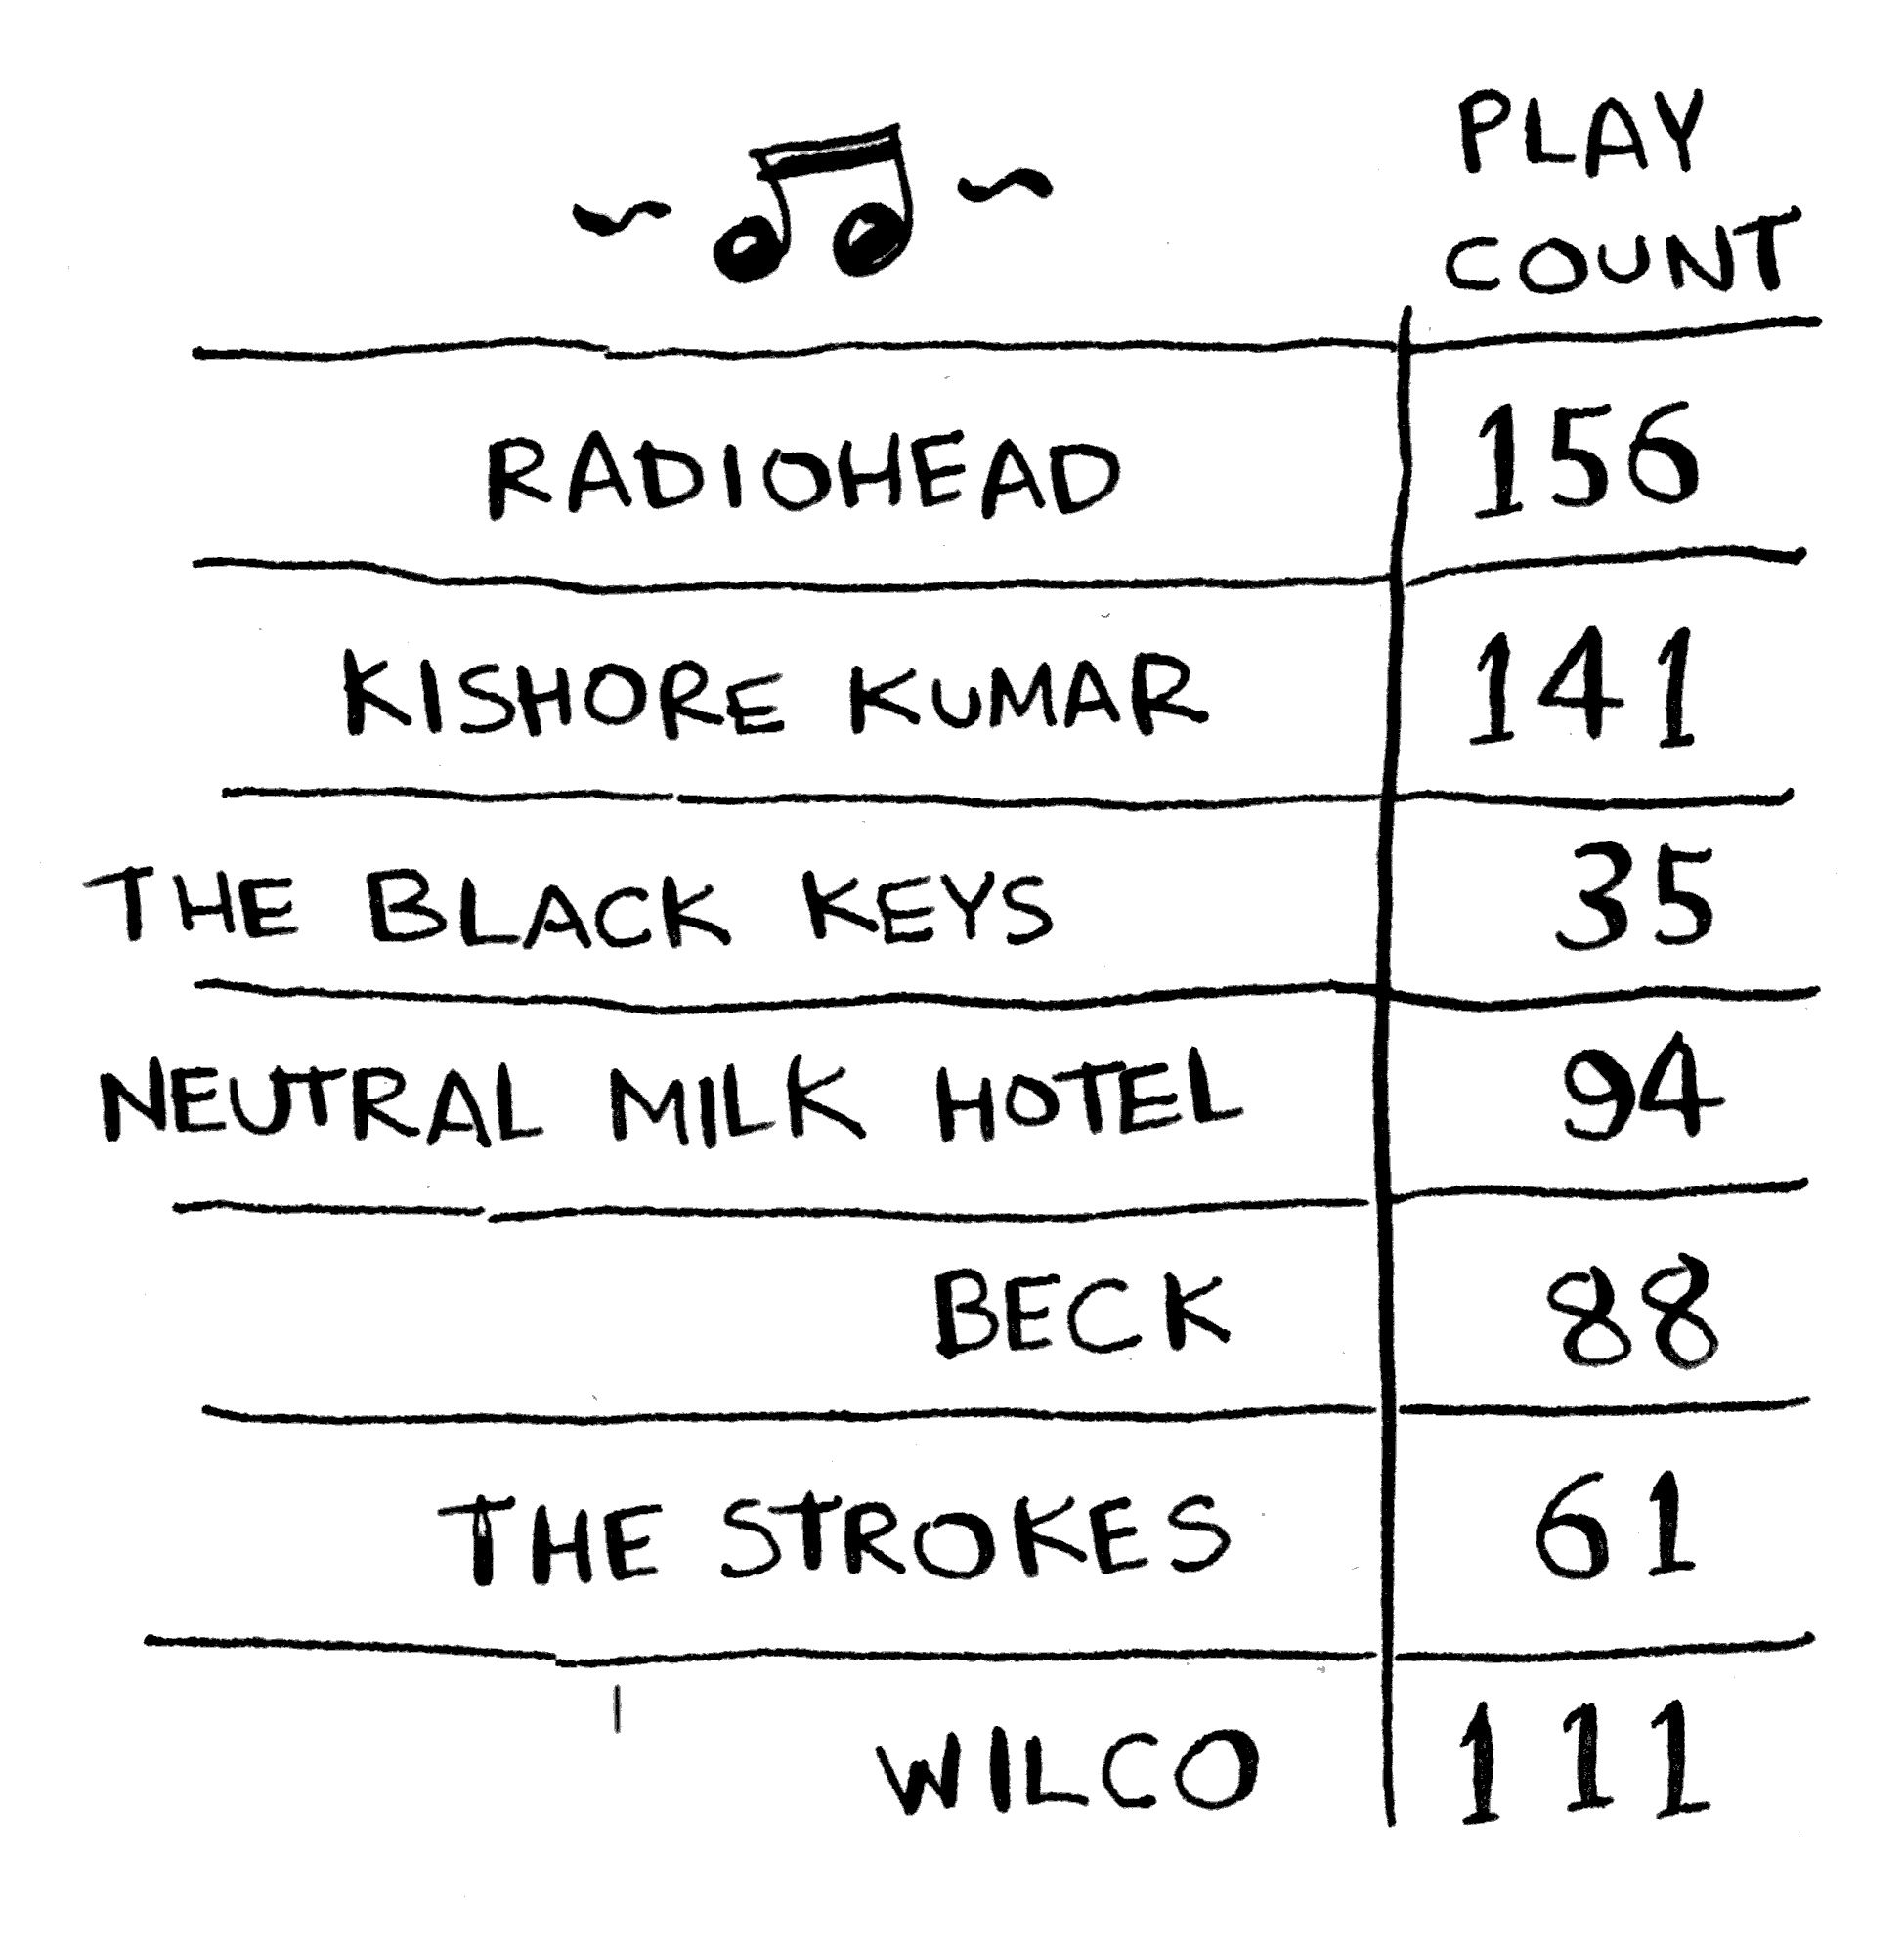 PLAY
COUNT
RADIOHEAD 156
KISHORE KUMAR 141
THE BLACK KEYS 35
NEUTRAL MILK HOTEL 94
BECK 88
THE STROKES 61
WILCO 111